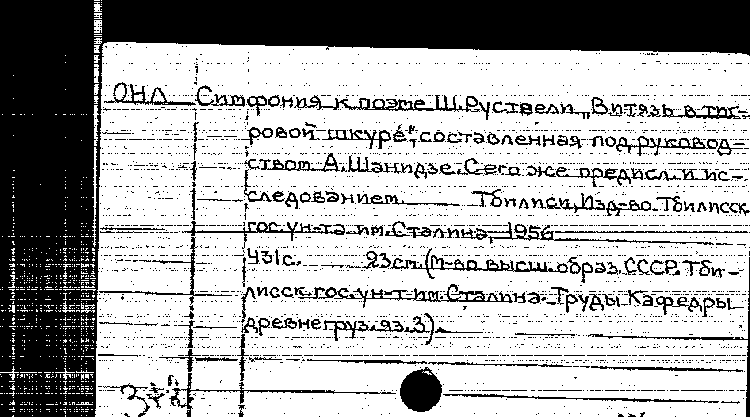 ОНЛ Симфония к поэме Ш.Руствели „Витязь в тиг-
ровой шкуре", составленная под руковод-
ством А.Шанидзе. С его же предисл. и ис-
следованием. Тбилиси, Изд-во Тбилисск
гос. ун-та им. Сталина, 1956
431с. 23см. (М-во высш. образ. СССР. Тби-
лисск. гос. ун-т им. Сталина. Труды Кафедры
древнегруз. яз. 3).